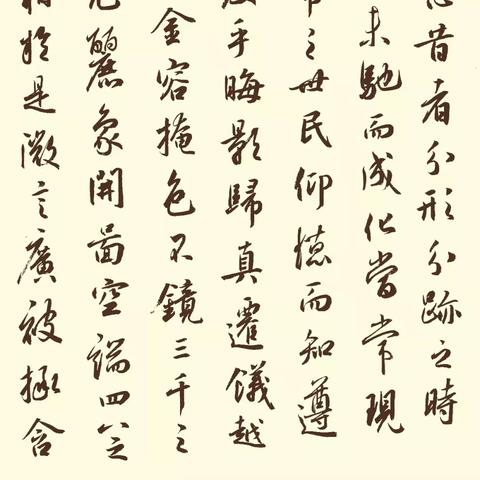 昔者分形分跡之時
未馳而成化當常現
之世民仰德而知遵
乎晦影歸真遷儀越
金容掩色不鏡三千之
麗象開圖空端四八之
於是微言廣被拯含